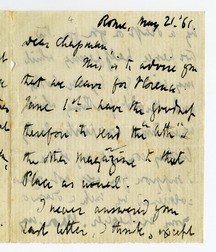 Rome, May 21. '61.
Dear Chapman
This is to advise you
that we leave for Florence
June 1st - have the goodness
therefore to send the Ath: &
the other magazine to that
Place as usual.
I never answered your
last letter, I think, except